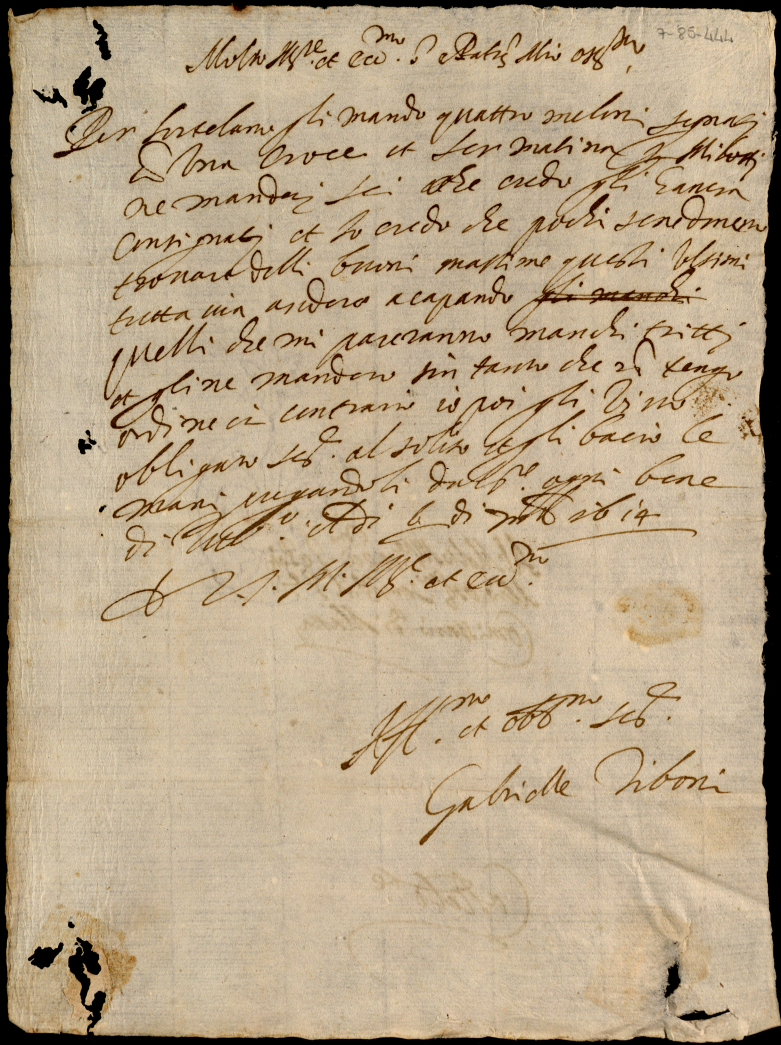 7-85-444
Molto Ill.re et ecc.mo S.r Patro Mio oss.mo
Per hortelano gli mando quattro meloni segnati
cõ una croce et ser matina p
ne mandai sei che credo gli havera
consignati et io credo che pochi
trovare delli buoni massime questi ultimi
tutta via andero acapando gli manchi
quelli che mi pareranno manchi tristi
et gline mandero sin tanto che nõ tengo
ordine in contrario io poi gli vivo
obligato al solito et gli bacio le
mani pregandoli ogni bene
di Adi di 1614
D V. S. M. Ill.re et ecc.mo
Aff.mo et obb.mo
Gabrielle Tiboni